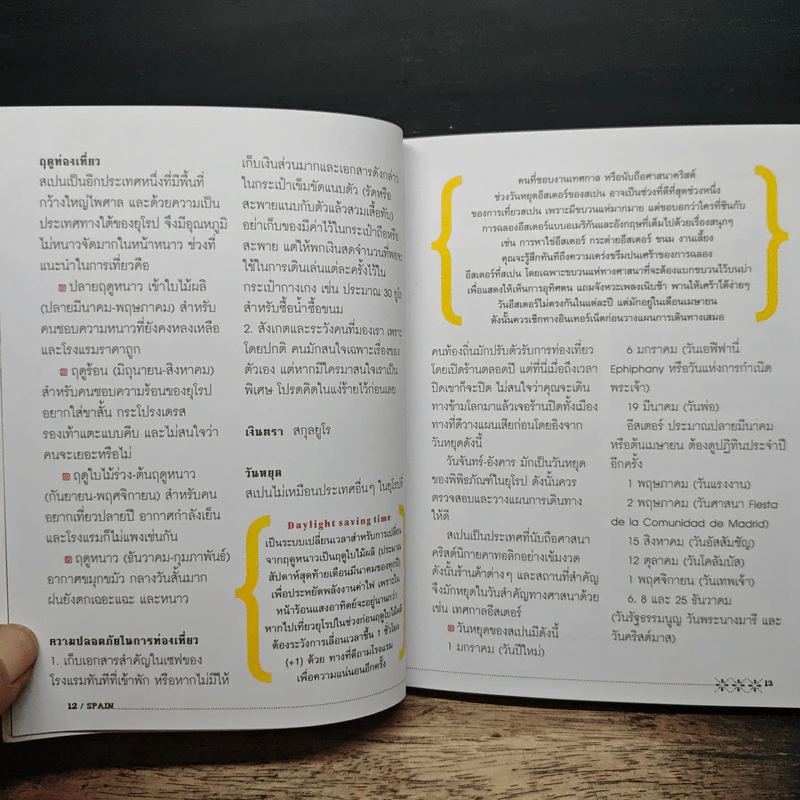 ฤดูท่องเที่ยว
สเปนเป็นอีกประเทศหนึ่งที่มีพื้นที่
กว้างใหญ่ไพศาล และด้วยความเป็น
ประเทศทางใต้ของยุโรป จึงมีอุณหภูมิ
ไม่หนาวจัดมากในหน้าหนาว ช่วงที่
แนะนำในการเที่ยวคือ
ปลายฤดูหนาว เข้าใบไม้ผลิ
(ปลายมีนาคม-พฤษภาคม) สำหรับ
คนชอบความหนาวที่ยังคงหลงเหลือ
และโรงแรมราคาถูก
ฤดูร้อน (มิถุนายน-สิงหาคม)
สำหรับคนชอบความร้อนของยุโรป
อยากใส่ขาสั้น กระโปรงเดรส
รองเท้าแตะแบบคีบ และไม่สนใจว่า
คนจะเยอะหรือไม่
ฤดูใบไม้ร่วง-ต้นฤดูหนาว
(กันยายน-พฤศจิกายน) สำหรับคน
อยากเที่ยวปลายปี อากาศกำลังเย็น
และโรงแรมก็ไม่แพงเช่นกัน
ฤดูหนาว (ธันวาคม-กุมภาพันธ์)
อากาศขมุกขมัว กลางวันสั้นมาก
ฝนยังตกเฉอะแฉะ และหนาว
ความปลอดภัยในการท่องเที่ยว
1. เก็บเอกสารสำคัญในเซฟของ
โรงแรมทันทีที่เข้าพัก หรือหากไม่มีให้
12 / SPAIN
เก็บเงินส่วนมากและเอกสารดังกล่าว
ในกระเป๋าเข็มขัดแนบตัว (รัดหรือ
สะพายแนบกับตัวแล้วสวมเสื้อทับ)
อย่าเก็บของมีค่าไว้ในกระเป๋าถือหรือ
สะพาย แต่ให้พกเงินสดจำนวนที่พอจะ
ใช้ในการเดินเล่นแต่ละครั้งไว้ใน
กระเป๋ากางเกง เช่น ประมาณ 30 ยูโร
สำหรับซื้อน้ำซื้อขนม
2. สังเกตและระวังคนที่มองเรา เพราะ
โดยปกติ คนมักสนใจเฉพาะเรื่องของ
ตัวเอง แต่หากมีใครมาสนใจเราเป็น
พิเศษ โปรดคิดในแง่ร้ายไว้ก่อนเลย
เงินตรา สกุลยูโร
วันหยุด
สเปนไม่เหมือนประเทศอื่นๆ ในยุโรปที่
Daylight saving time
เป็นระบบเปลี่ยนเวลาสำหรับการเปลี่ยน
จากฤดูหนาวเป็นฤดูใบไม้ผลิ (ประมาณ
สัปดาห์สุดท้ายเดือนมีนาคมของทุกปี)
เพื่อประหยัดพลังงานค่าไฟ เพราะใน
หน้าร้อนแสงอาทิตย์จะอยู่นานกว่า
หากไปเที่ยวยุโรปในช่วงก่อนฤดูใบไม้ผลิ
ต้องระวังการเลื่อนเวลาขึ้น 1 ชั่วโมง
(+1) ด้วย ทางที่ดีถามโรงแรม
เพื่อความแน่นอนอีกครั้ง
คนที่ชอบงานเทศกาล หรือนับถือศาสนาคริสต์
ช่วงวันหยุดอีสเตอร์ของสเปน อาจเป็นช่วงที่ดีที่สุดช่วงหนึ่ง
ของการเที่ยวสเปน เพราะมีขบวนแห่มากมาย แต่ขอบอกว่าใครที่ชินกับ
การฉลองอีสเตอร์แบบอเมริกันและอังกฤษที่เต็มไปด้วยเรื่องสนุกๆ
เช่น การหาไข่อีสเตอร์ กระต่ายอีสเตอร์ ขนม งานเลี้ยง
คุณจะรู้สึกทันทีถึงความเคร่งขรึมปนเศร้าของการฉลอง
อีสเตอร์ที่สเปน โดยเฉพาะขบวนแห่ทางศาสนาที่จะต้องแบกขบวนไว้บนบ่า
เพื่อแสดงให้เห็นการอุทิศตน แถมจังหวะเพลงเนิบช้า พานให้เศร้าได้ง่ายๆ
วันอีสเตอร์ไม่ตรงกันในแต่ละปี แต่มักอยู่ในเดือนเมษายน
ดังนั้นควรเช็กทางอินเทอร์เน็ตก่อนวางแผนการเดินทางเสมอ
คนท้องถิ่นมักปรับตัวรับการท่องเที่ยว
โดยเปิดร้านตลอดปี แต่ที่นี่เมื่อถึงเวลา
ปิดเขาก็จะปิด ไม่สนใจว่าคุณจะเดิน
ทางข้ามโลกมาแล้วเจอร้านปิดทั้งเมือง
ทางที่ดีวางแผนเสียก่อนโดยอิงจาก
วันหยุดดังนี้
วันจันทร์-อังคาร มักเป็นวันหยุด
ของพิพิธภัณฑ์ในยุโรป ดังนั้นควร
ตรวจสอบและวางแผนการเดินทาง
ให้ดี
สเปนเป็นประเทศที่นับถือศาสนา
คริสต์นิกายคาทอลิกอย่างเข้มงวด
ดังนั้นร้านค้าต่างๆ และสถานที่สำคัญ
จึงมักหยุดในวันสำคัญทางศาสนาด้วย
เช่น เทศกาลอีสเตอร์
วันหยุดของสเปนมีดังนี้
1 มกราคม (วันปีใหม่)
6 มกราคม (วันเอพิฟานี่
Ephiphany หรือวันแห่งการกำเนิด
พระเจ้า)
19 มีนาคม (วันพ่อ)
อีสเตอร์ ประมาณปลายมีนาคม
หรือต้นเมษายน ต้องดูปฏิทินประจำปี
อีกครั้ง
1 พฤษภาคม (วันแรงงาน)
2 พฤษภาคม (วันศาสนา Fiesta
de la Comunidad de Madrid)
15 สิงหาคม (วันอัสสัมชัญ)
12 ตุลาคม (วันโคลัมบัส)
1 พฤศจิกายน (วันเทพเจ้า)
6, 8 และ 25 ธันวาคม
(วันรัฐธรรมนูญ วันพระนางมารี และ
วันคริสต์มาส)
13